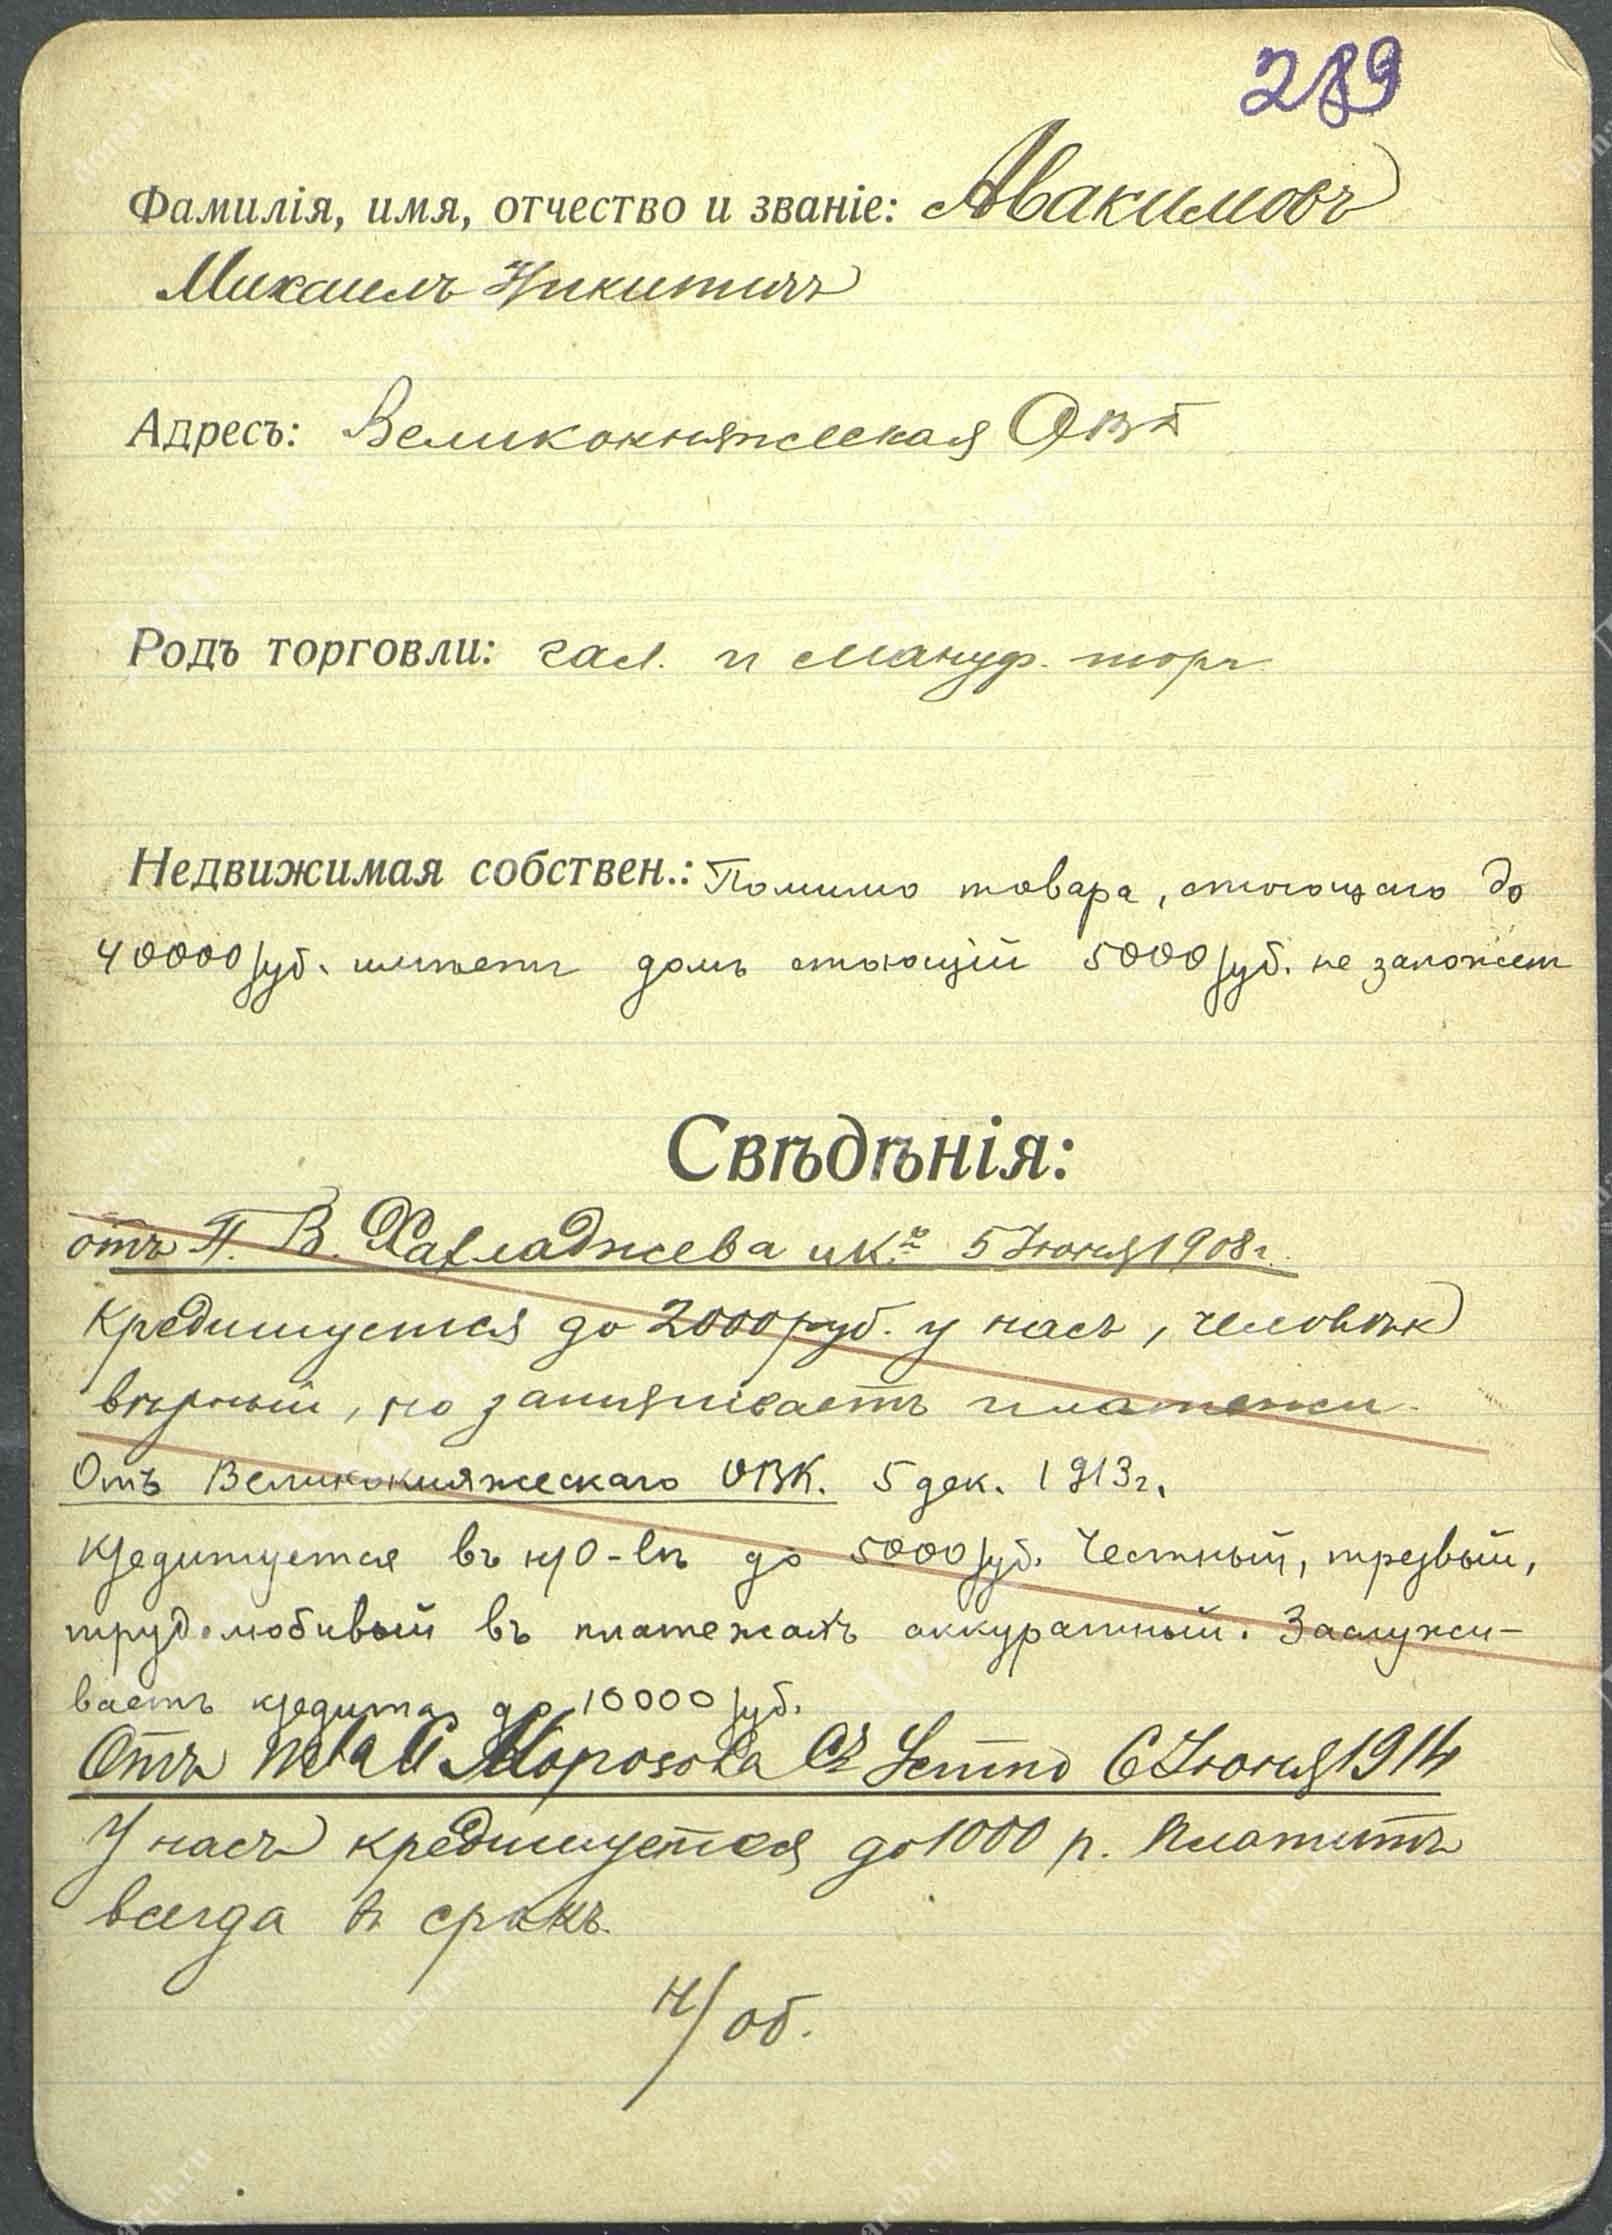 289
Фамилія, имя, отчество и званіе: Авакимовъ
Михаилъ Никитичъ
Адресъ: Великокняжеская
Родъ торговли: гал. и мануф. торг.
Недвижимая собствен.: Помимо товара, стоющаго до
40000 руб. имѣетъ домъ стоющій 5000 руб. не заложен
Свѣдѣнія:
отъ П. В. и Ко 5 Іюня 1908 г.
Кредитуется до 2000 руб. у насъ, человѣк
вѣрный, но затягиваетъ платежи.
Отъ Великокняжескаго ОВК. 5 дек. 1913 г.
Кредитуется въ до 5000 руб. Честный, трезвый,
трудолюбивый въ платежахъ аккуратный. Заслужи-
ваетъ кредита до 10000 руб.
Отъ Морозова 6 Іюня 1914
У насъ кредитуется до 1000 р. Платитъ
всегда в срокъ.
н/об.